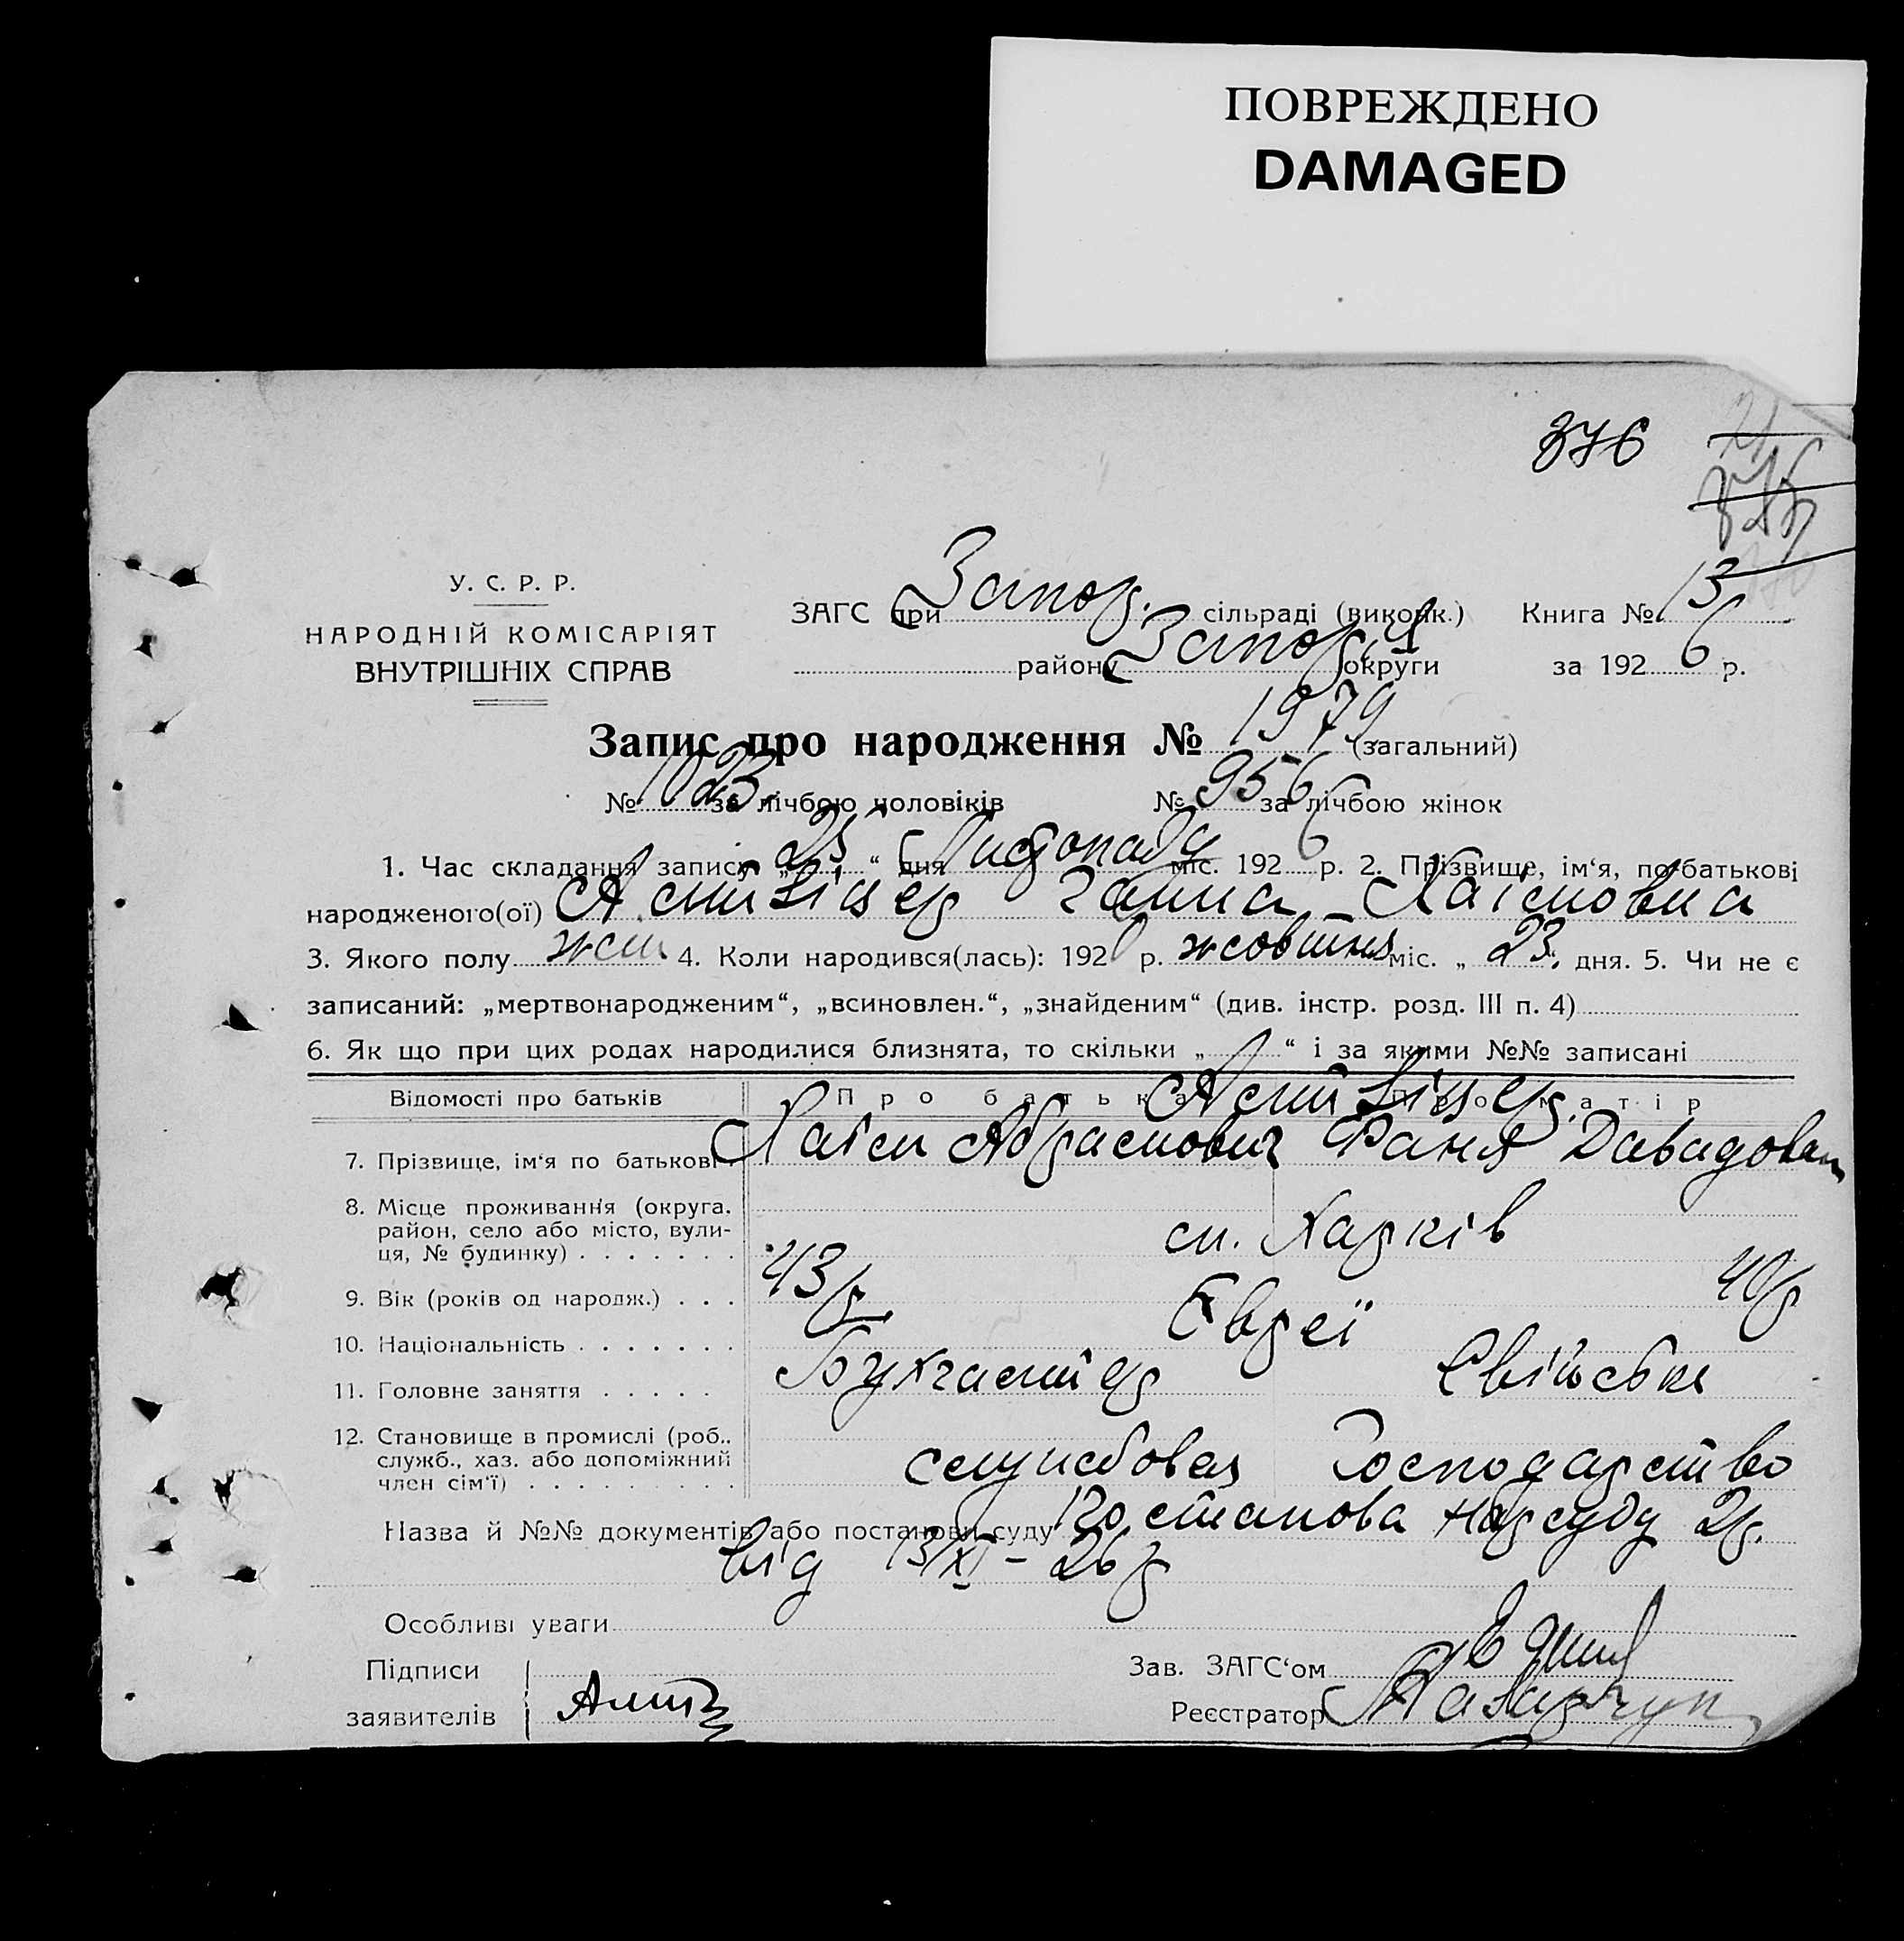 ПОВРЕЖДЕНО
DAMAGED
376
У. С. Р. Р.
НАРОДНІЙ КОМІСАРІЯТ
ВНУТРІШНІХ СПРАВ
ЗАГС при Запор. сільраді (виконк.) Книга № 13
району Запор. округи за 1926 р.
Запис про народження № 1979 (загальний)
№ 1023 за лічбою чоловіків № 956 за лічбою жінок
1. Час складання запису „25“ дня Листопаду міс. 1926 р. 2. Прізвище, ім‘я, по-батькові
народженого(ої) Ганна Хаїмовна
3. Якого полу жен 4. Коли народився(лась): 1920 р. жовтня міс. „23. дня. 5. Чи не є
записаний: „мертвонародженим“, „всиновлен.“, „знайденим“ (див. інстр. розд. III п. 4)
6. Як що при цих родах народилися близнята, то скільки „ “ і за якими №№ записані
Відомості про батьків Про батька Про матір
7. Прізвище, ім‘я по батькові. Хаїм Абрамович Фаня Давидовна
8. Місце проживання (округа, район, село або місто, вулиця, № будинку) . . . . . . . м. Харків
9. Вік (років од народж.) . . . 43/р 40/р
10. Національність . . . . . . . Євреї
11. Головне заняття . . . . . Бухгалтер Свійське
12. Становище в промислі (роб.. служб., хаз. або допоміжний член сім‘ї) . . . . . . . . . службовец Господарство
Назва й №№ документів або постанови суду Постанова Нарсуду 2р.
від 13/XI – 26 р
Особливі уваги
Підписи
заявителів
Зав. ЗАГС‘ом
Реєстратор